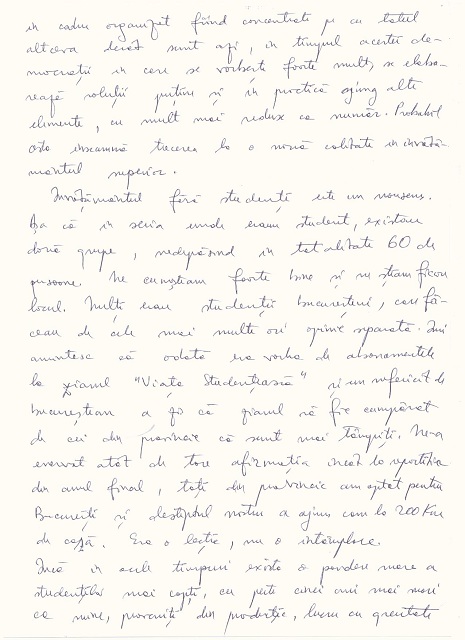 in cadru organizat fiind concentrate pe cu totul
altceva decât sunt azi, în timpul acestei de-
mocrații în care se vorbește foarte mult, se elabo-
rează soluții puține și în practică ajung alte
elemente, cu mult mai reduse ca număr. Probabil
asta înseamnă trecerea la o nouă calitate în învăță-
mântul superior.
Învățământul fără studenți este un nonsens.
Așa că în seria unde eram student, existau
două grupe, nedepășind în totalitate 60 de
persoane. Ne cunoșteam foarte bine și ne știam fiecare
locul. Mulți erau studenții bucureșteni, care fă-
ceau de cele mai multe ori opinie separată. Îmi
amintesc că odată era vorba de abonamentele
la ziarul "Viața Studențească" și un nefericit de
bucureștean a zis că ziarul să fie cumpărat
de cei din provincie că sunt mai tâmpiți. Ne-a
enervat atât de tare afirmația încât la repartiția
din anul final, toți din provincie am optat pentru
București și deșteptul nostru a ajuns cam la 200 Km
de casă. Era o lecție, nu o întâmplare.
Încă în acele timpuri exista o pondere mare a
studenților mai copți, cu peste cinci ani mai mari
ca mine, proveniți din producție, lucru cu greutate